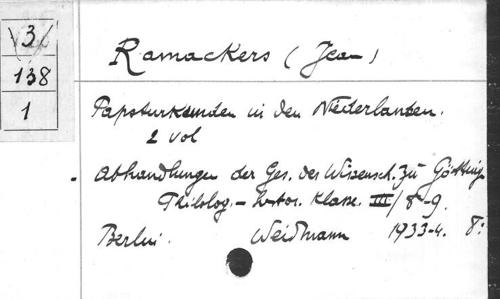 3
138
1
Ramackers (Jean)
Papsturkunden in den Niederlanden.
2 vol
Abhandlungen der Ges. der Wissensch. zu Götting
Philolog.-histor. Klasse. III/8-9.
Berlin. Weidmann 1933-4. 8: